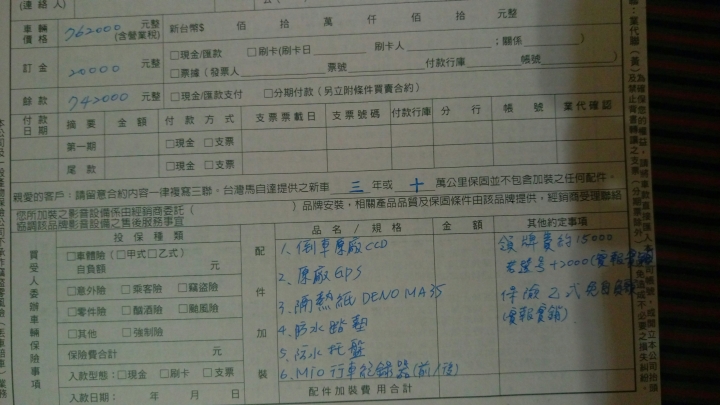 (連絡人)
車輛價格 762000 元整 (含營業稅) 新台幣$ 佰 拾 萬 仟 佰 拾 元整
訂金 20000 元整 □現金/匯款 □刷卡(刷卡日 刷卡人 ;關係 )
□票據(發票人 票號 付款行庫 帳號 )
餘款 742000 元整 □現金/匯款支付 □分期付款(另立附條件買賣合約)
付款日期 摘要 金額 付款方式 支票票載日 支票號碼 付款行庫 分行 帳號 業代確認
第一期 □現金 □支票
尾款 □現金 □支票
親愛的客戶:請留意合約內容一律複寫三聯。台灣馬自達提供之新車 三 年或 十 萬公里保固並不包含加裝之任何配件。
您所加裝之影音設備係由經銷商委託( )品牌安裝,相關產品品質及保固條件由該品牌提供,經銷商受理聯絡
協調該品牌影音設備之售後服務事宜
投保種類 配件加裝 品名/規格 金額 其他約定事項
買受人委辦車輛保險事項
□車體險(□甲式□乙式)
自負額 元
□意外險 □乘客險 □竊盜險
□零件險 □酗酒險 □颱風險
□其他 □強制險
保險費合計 元
入款型態:□現金 □刷卡 □支票
入款日期: 年 月 日
1. 倒車原廠CCD
2. 原廠GPS
3. 隔熱紙 DENO MA35
4. 防水踏墊
5. 防水托盤
6. Mio 行車記錄器(前/後)
配件加裝費用合計
領牌費約15000
若選號+2000(實報實銷
保險乙式免自負額
(實報實銷)